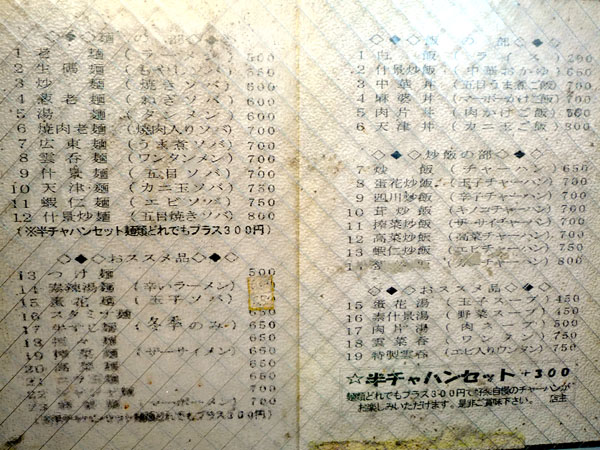 ◇◆◇麺の部◇◆◇
1 老麺 (ラーメン) 500
2 生碼麺 (もやしソバ) 650
3 炒麺 (焼きソバ) 600
4 (ねぎソバ) 600
5 湯麺 (タンメン) 600
6 焼肉老麺 (焼肉入りソバ) 700
7 広東麺 (うま煮ソバ) 700
8 雲呑麺 (ワンタンメン) 700
9 什景麺 (五目ソバ) 700
10 天津麺 (カニ玉ソバ) 750
11 蝦仁麺 (エビソバ) 750
12 什景炒麺 (五目焼きソバ) 800
(※半チャハンセット麺類どれでもプラス300円)
◇◆◇おススメ品◇◆◇
13 つけ麺 500
14 (辛バラーメン)
15 蛋花麺 (玉子ソバ)
16 スタミナ麺 650
17 (冬季のみ) 650
18 650
19 搾菜麺 (ザーサイメン) 650
20 高菜麺 650
21 ニラ玉麺 650
22 700
23 700
◇◆◇の部◇◆◇
1 白飯 (ライス) 200
2 什景炒飯 (中華おかゆ) 650
3 中華丼 (五目うま煮ご飯) 700
4 麻婆丼 (マーボーかけご飯) 700
5 肉片丼 (肉かけご飯) 750
6 天津丼 (カニ玉ご飯) 800
◇◆◇炒飯の部◇◆◇
7 炒飯 (チャーハン) 650
8 蛋花炒飯 (玉子チャーハン) 700
9 四川炒飯 (辛子チャーハン) 700
10 茸炒飯 (キノコチャーハン) 700
11 搾菜炒飯 (ザーサイチャーハン) 700
12 高菜炒飯 (高菜チャーハン) 700
13 蝦仁炒飯 (エビチャーハン) 750
14 800
◇◆◇おススメ品◇◆◇
15 蛋花湯 (玉子スープ) 450
16 素什景湯 (野菜スープ) 450
17 肉片湯 (肉スープ) 500
18 雲呑 (ワンタン) 550
19 特製雲呑 (エビ入りワンタン) 750
☆半チャハンセット +300
麺類どれでもプラス300円で自慢のチャーハンが
お楽しみいただけます。是非ご賞味下さい。 店主